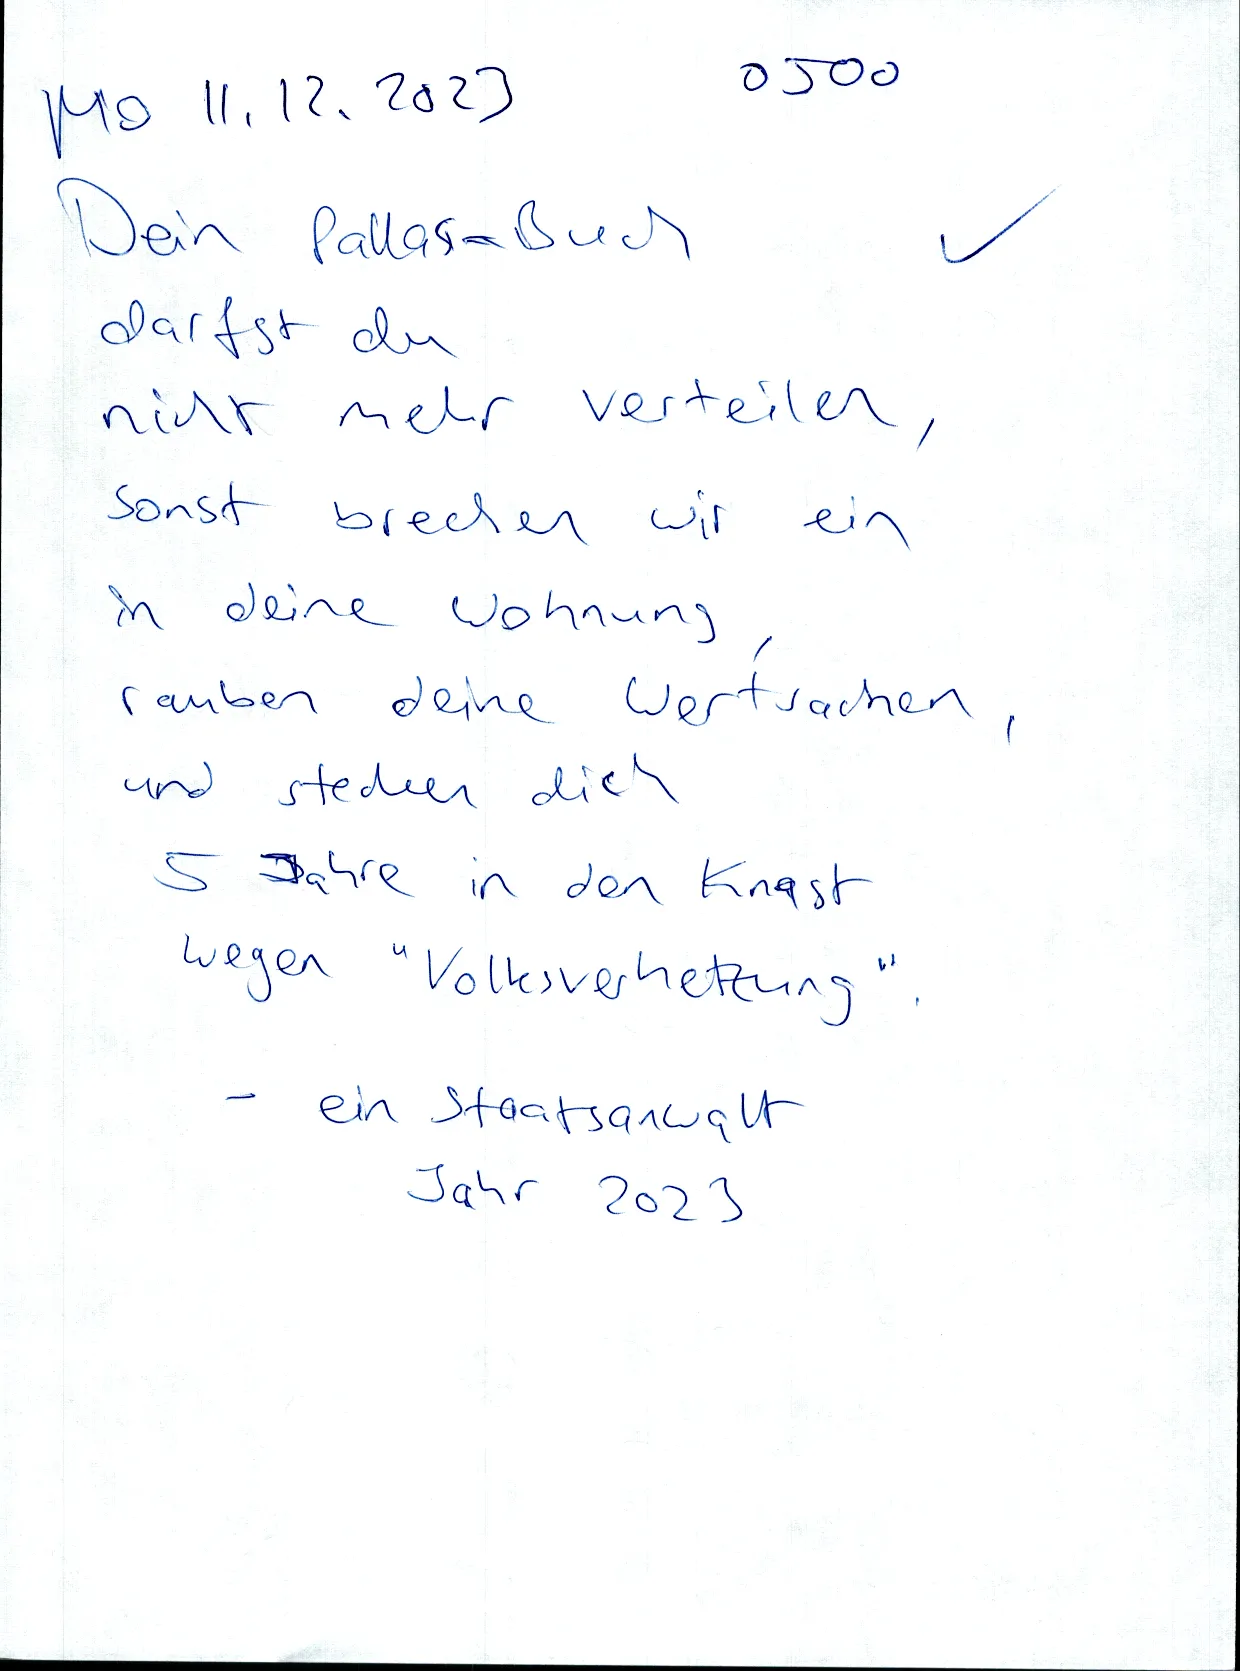 Mo 11.12.2023 0500
Dein Pallas-Buch
darfst du
nicht mehr verteilen,
sonst brechen wir ein
in deine Wohnung,
rauben deine Wertsachen,
und stecken dich
5 Jahre in den Knast
wegen "Volksverhetzung".
- ein Staatsanwalt
Jahr 2023